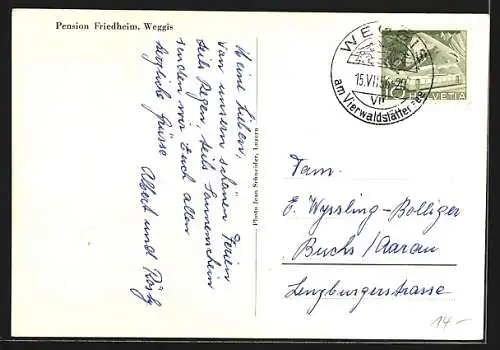 Pension Friedheim, Weggis
Meine Lieben,
Von unsern schönen Ferien
teils Regen, teils Sonnenschein
senden wir Euch allen
herzliche Grüsse
Albert und Rösly
Photo Jean Schneider, Luzern
WEGGIS
15.VII.
VII
am Vierwaldstätter-See
HELVETIA
Fam.
E. Wyssling-Bolliger
Buchs/Aarau
Lenzburgerstrasse
14-